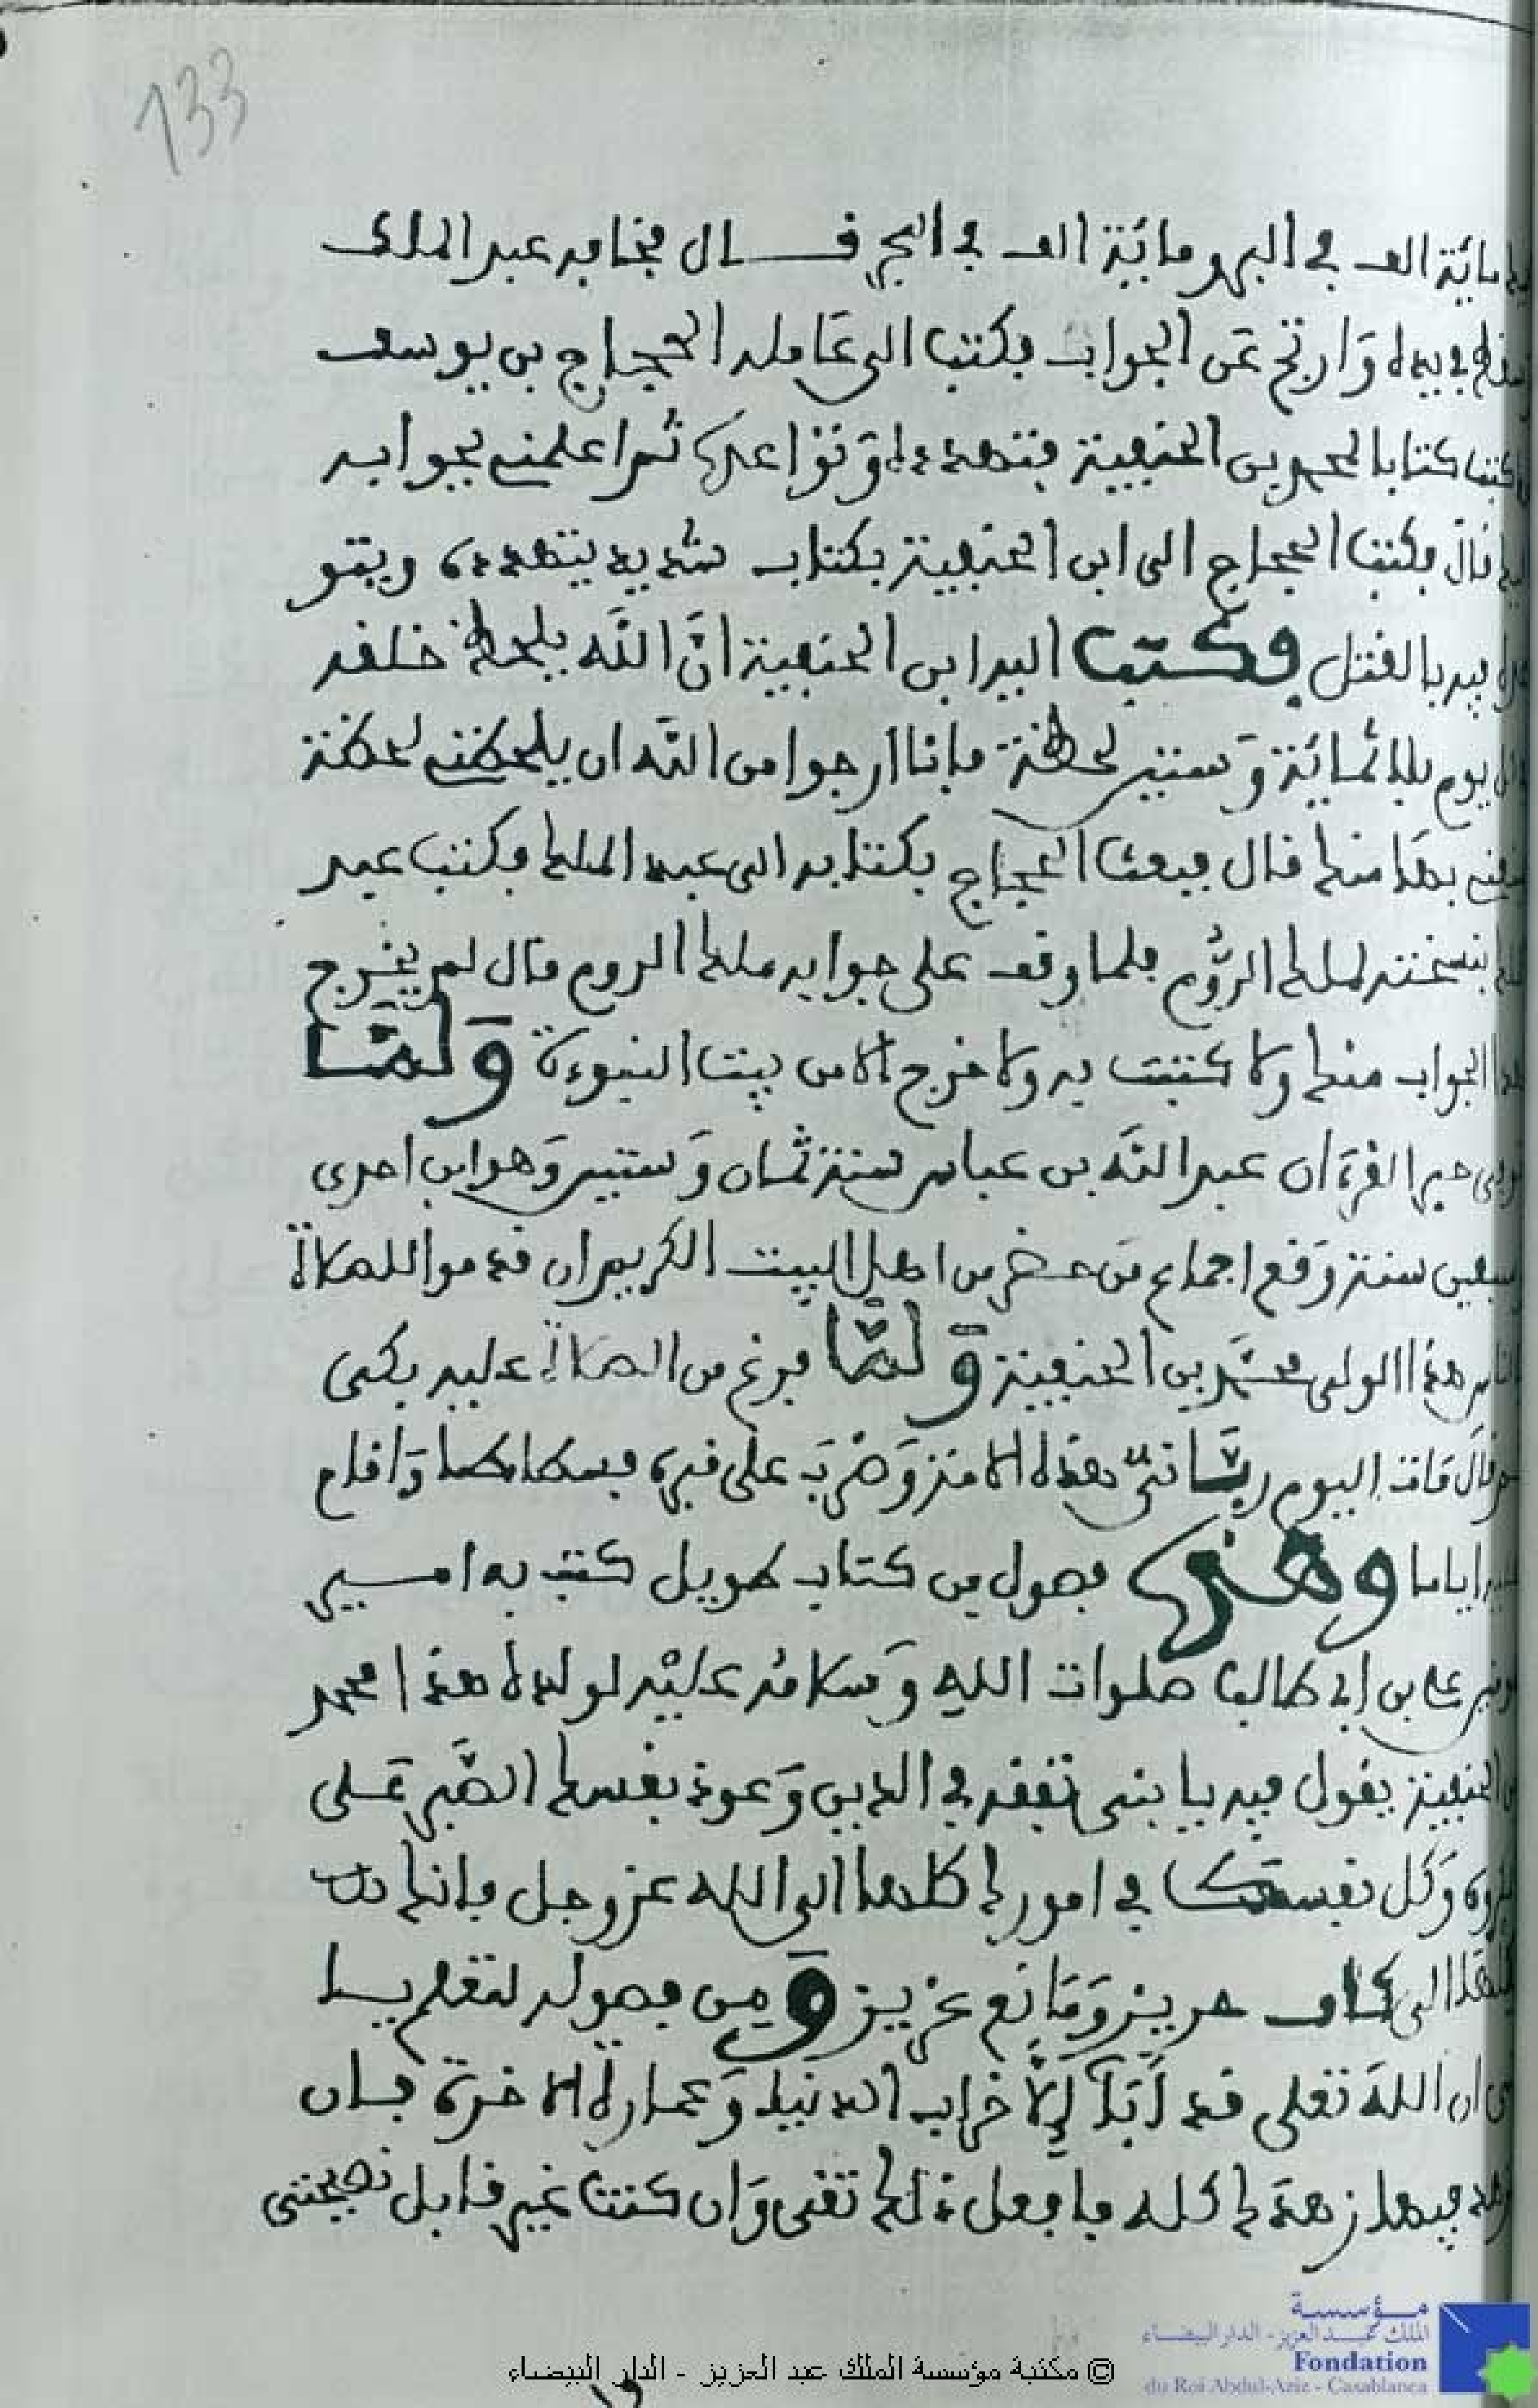 133
مائة الف في البر ومائة الف في البحر قال فخاف عبد الملك
في يده وارتج عن الجواب فكتب الى عامله الحجاج بن يوسف
اكتب كتابا لمحمد بن الحنفية فتهدده وتواعده ثم اعلمني بجوابه
قال فكتب الحجاج الى ابن الحنفية بكتاب شديد يتهدده ويتو
فيه بالقتل وكتب اليه ابن الحنفية ان الله يلحظ خلقه
يوم ثلاثمائة وستين لحظة فانا ارجوا من الله ان يلحظني لحظة
بها منك قال فبعث الحجاج بكتابه الى عبد الملك فكتب عبد
بنسخته لملك الروم فلما وقف على جوابه ملك الروم قال لم يخرج
هذا الجواب منك ولا كتبت به ولا خرج الا من بيت النبوءة ولما
توفي حبر القرءان عبد الله بن عباس سنة ثمان وستين وهو ابن احدى
سبعين سنة وقع اجماع من حضر من اهل البيت الكريم ان قدموا للصلاة
هذا الولى محمد بن الحنفية ولما فرغ من الصلاة عليه بكى
وقال مات اليوم رباني هذه الامة وضرب على قبره فسطاطا واقام
اياما وهذه فصول من كتاب طويل كتب به امير
علي بن ابي طالب صلوات الله وسلامه عليه لولده هذا محمد
الحنفية يقول فيه يا بني تفقه في الدين وعود نفسك الصبر على
وكل نفسك في امورك كلها الى الله عز وجل فانك
الى كاف حريز ومانع عزيز ومن فصوله لتعلم يا
ان الله تعلى قد أبآ إلا خراب الدنيا وعمارة الاخرة فان
فيها زهدك كله فافعل ذلك تفى وان كنت غير قابل نصيحتى
© مكتبة مؤسسة الملك عبد العزيز - الدار البيضاء
مؤسسة
الملك عبد العزيز - الدار البيضاء
Fondation
du Roi Abdul-Aziz - Casablanca